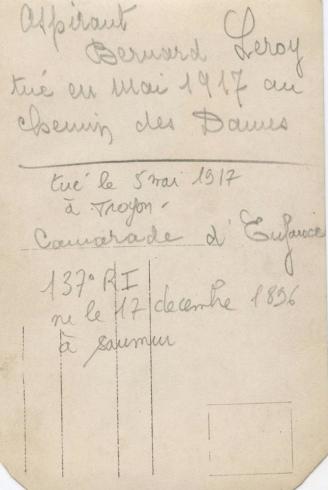 Aspirant
Bernard Leroy
tué en Mai 1917 au
chemin des Dames
tué le 5 mai 1917
à Troyon -
Camarade d'Enfance
137e RI
né le 17 decembre 1896
à Saumur